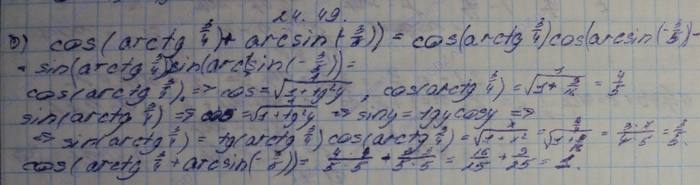 24.49.
б) cos(arctg 3/4 + arcsin(-3/5)) = cos(arctg 3/4)cos(arcsin(-3/5)) -
- sin(arctg 3/4)sin(arcsin(-3/5)) =
cos(arctg 3/4) => cos = √1/(1+tg²y), cos(arctg 3/4) = √1/(1+9/16) = 4/5
sin(arctg 3/4) => = √(1+tg²y) => siny = tgy cosy =>
=> sin(arctg 3/4) = tg(arctg 3/4) cos(arctg 3/4) = x/√(1+x²) = = (3·4)/(4·5) = 3/5.
cos(arctg 3/4 + arcsin(-3/5)) = (4·4)/(5·5) + (3·3)/(5·5) = 16/25 + 9/25 = 1.